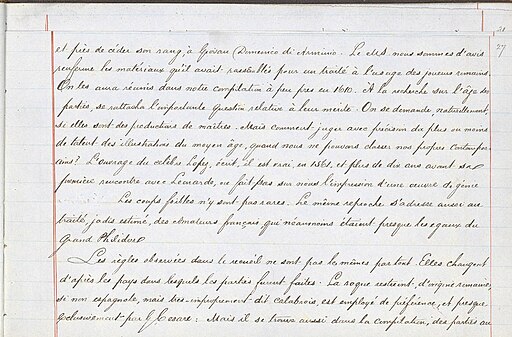 21
27
et près de céder son rang à Gjovan (Domenico di Arminio. Le MS. nous sommes d'avis
renferme les matériaux qu'il avait rassemblés pour un traité à l'usage des joueurs romains.
On les aura réunis dans notre compilation à peu près en 1610. À la recherche sur l'âge des
parties, se rattacha l'importante question relative à leur mérite. On se demande, naturellement,
si elles sont des productions de maîtres. Mais comment juger avec précision du plus ou moins
de talent des illustrations du moyen âge, quand nous ne pouvons classer nos propres contempor-
ains? L'ouvrage du célèbre Lopez, écrit, il est vrai, en 1561, et plus de dix ans avant sa
première rencontre avec Leonardo, ne fait pas sur nous l'impression d'une œuvre de génie
Les coups faibles n'y sont pas rares. Le même reproche s'adresse aussi au
traité, jadis estimé, des amateurs français, qui néanmoins étaient presque les égaux du
Grand Philidor
Les règles observées dans le recueil ne sont pas les mêmes partout. Elles changent
d'après les pays dans lesquels les parties furent faites. La roque restreint, d'origine romaine,
si non espagnole, mais très-improprement dit calabrois, est employé de préférence, et presque
exclusivement par G. Cesare: Mais il se trouve aussi dans la compilation, des parties au